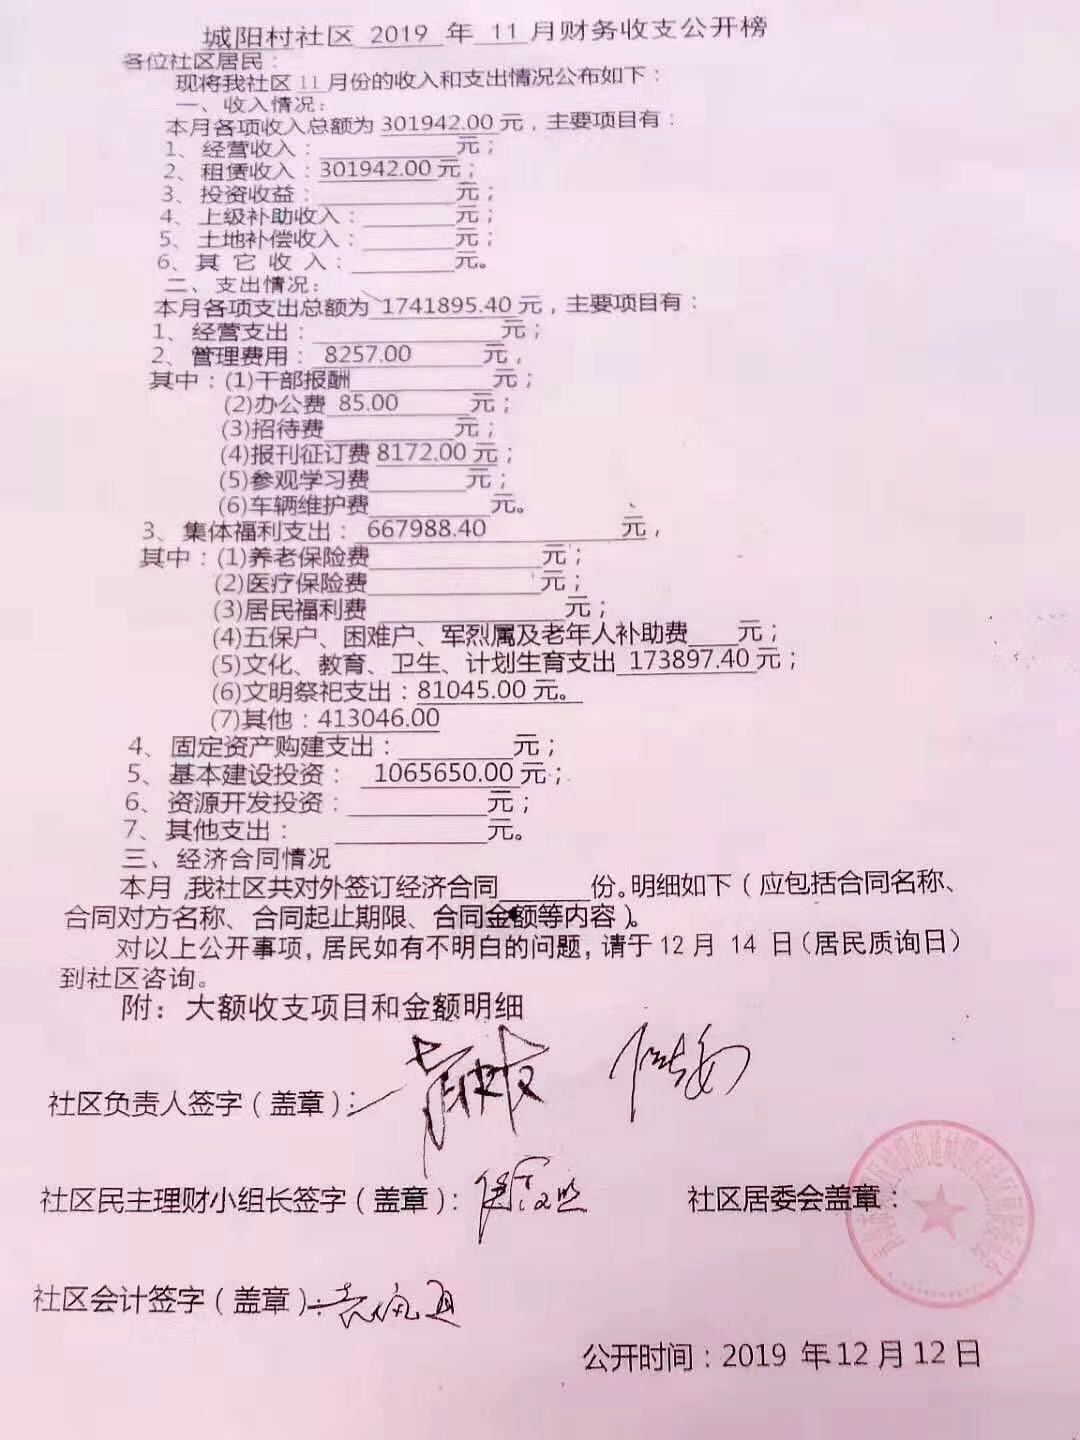 城阳村社区 2019 年 11 月财务收支公开榜
各位社区居民：
现将我社区 11 月份的收入和支出情况公布如下：
一、收入情况：
本月各项收入总额为 301942.00 元，主要项目有：
1、经营收入：______元；
2、租赁收入：301942.00 元；
3、投资收益：______元；
4、上级补助收入：______元；
5、土地补偿收入：______元；
6、其 它 收 入：______元。
二、支出情况：
本月各项支出总额为 1741895.40 元，主要项目有：
1、经营支出：______元；
2、管理费用： 8257.00 元，
其中：(1)干部报酬______元；
(2)办公费 85.00 元；
(3)招待费______元；
(4)报刊征订费 8172.00 元；
(5)参观学习费______元；
(6)车辆维护费______元。
3、集体福利支出： 667988.40 元，
其中：(1)养老保险费______元；
(2)医疗保险费______元；
(3)居民福利费______元；
(4)五保户、困难户、军烈属及老年人补助费____元；
(5)文化、教育、卫生、计划生育支出 173897.40 元；
(6)文明祭祀支出：81045.00 元。
(7)其他：413046.00
4、固定资产购建支出：______元；
5、基本建设投资： 1065650.00 元；
6、资源开发投资：______元；
7、其他支出：______元。
三、经济合同情况
本月，我社区共对外签订经济合同______份。明细如下（应包括合同名称、
合同对方名称、合同起止期限、合同金额等内容）。
对以上公开事项，居民如有不明白的问题，请于 12 月 14 日（居民质询日）
到社区咨询。
附：大额收支项目和金额明细
社区负责人签字（盖章）：
社区民主理财小组长签字（盖章）：
社区居委会盖章：
社区会计签字（盖章）：
公开时间：2019 年 12 月 12 日